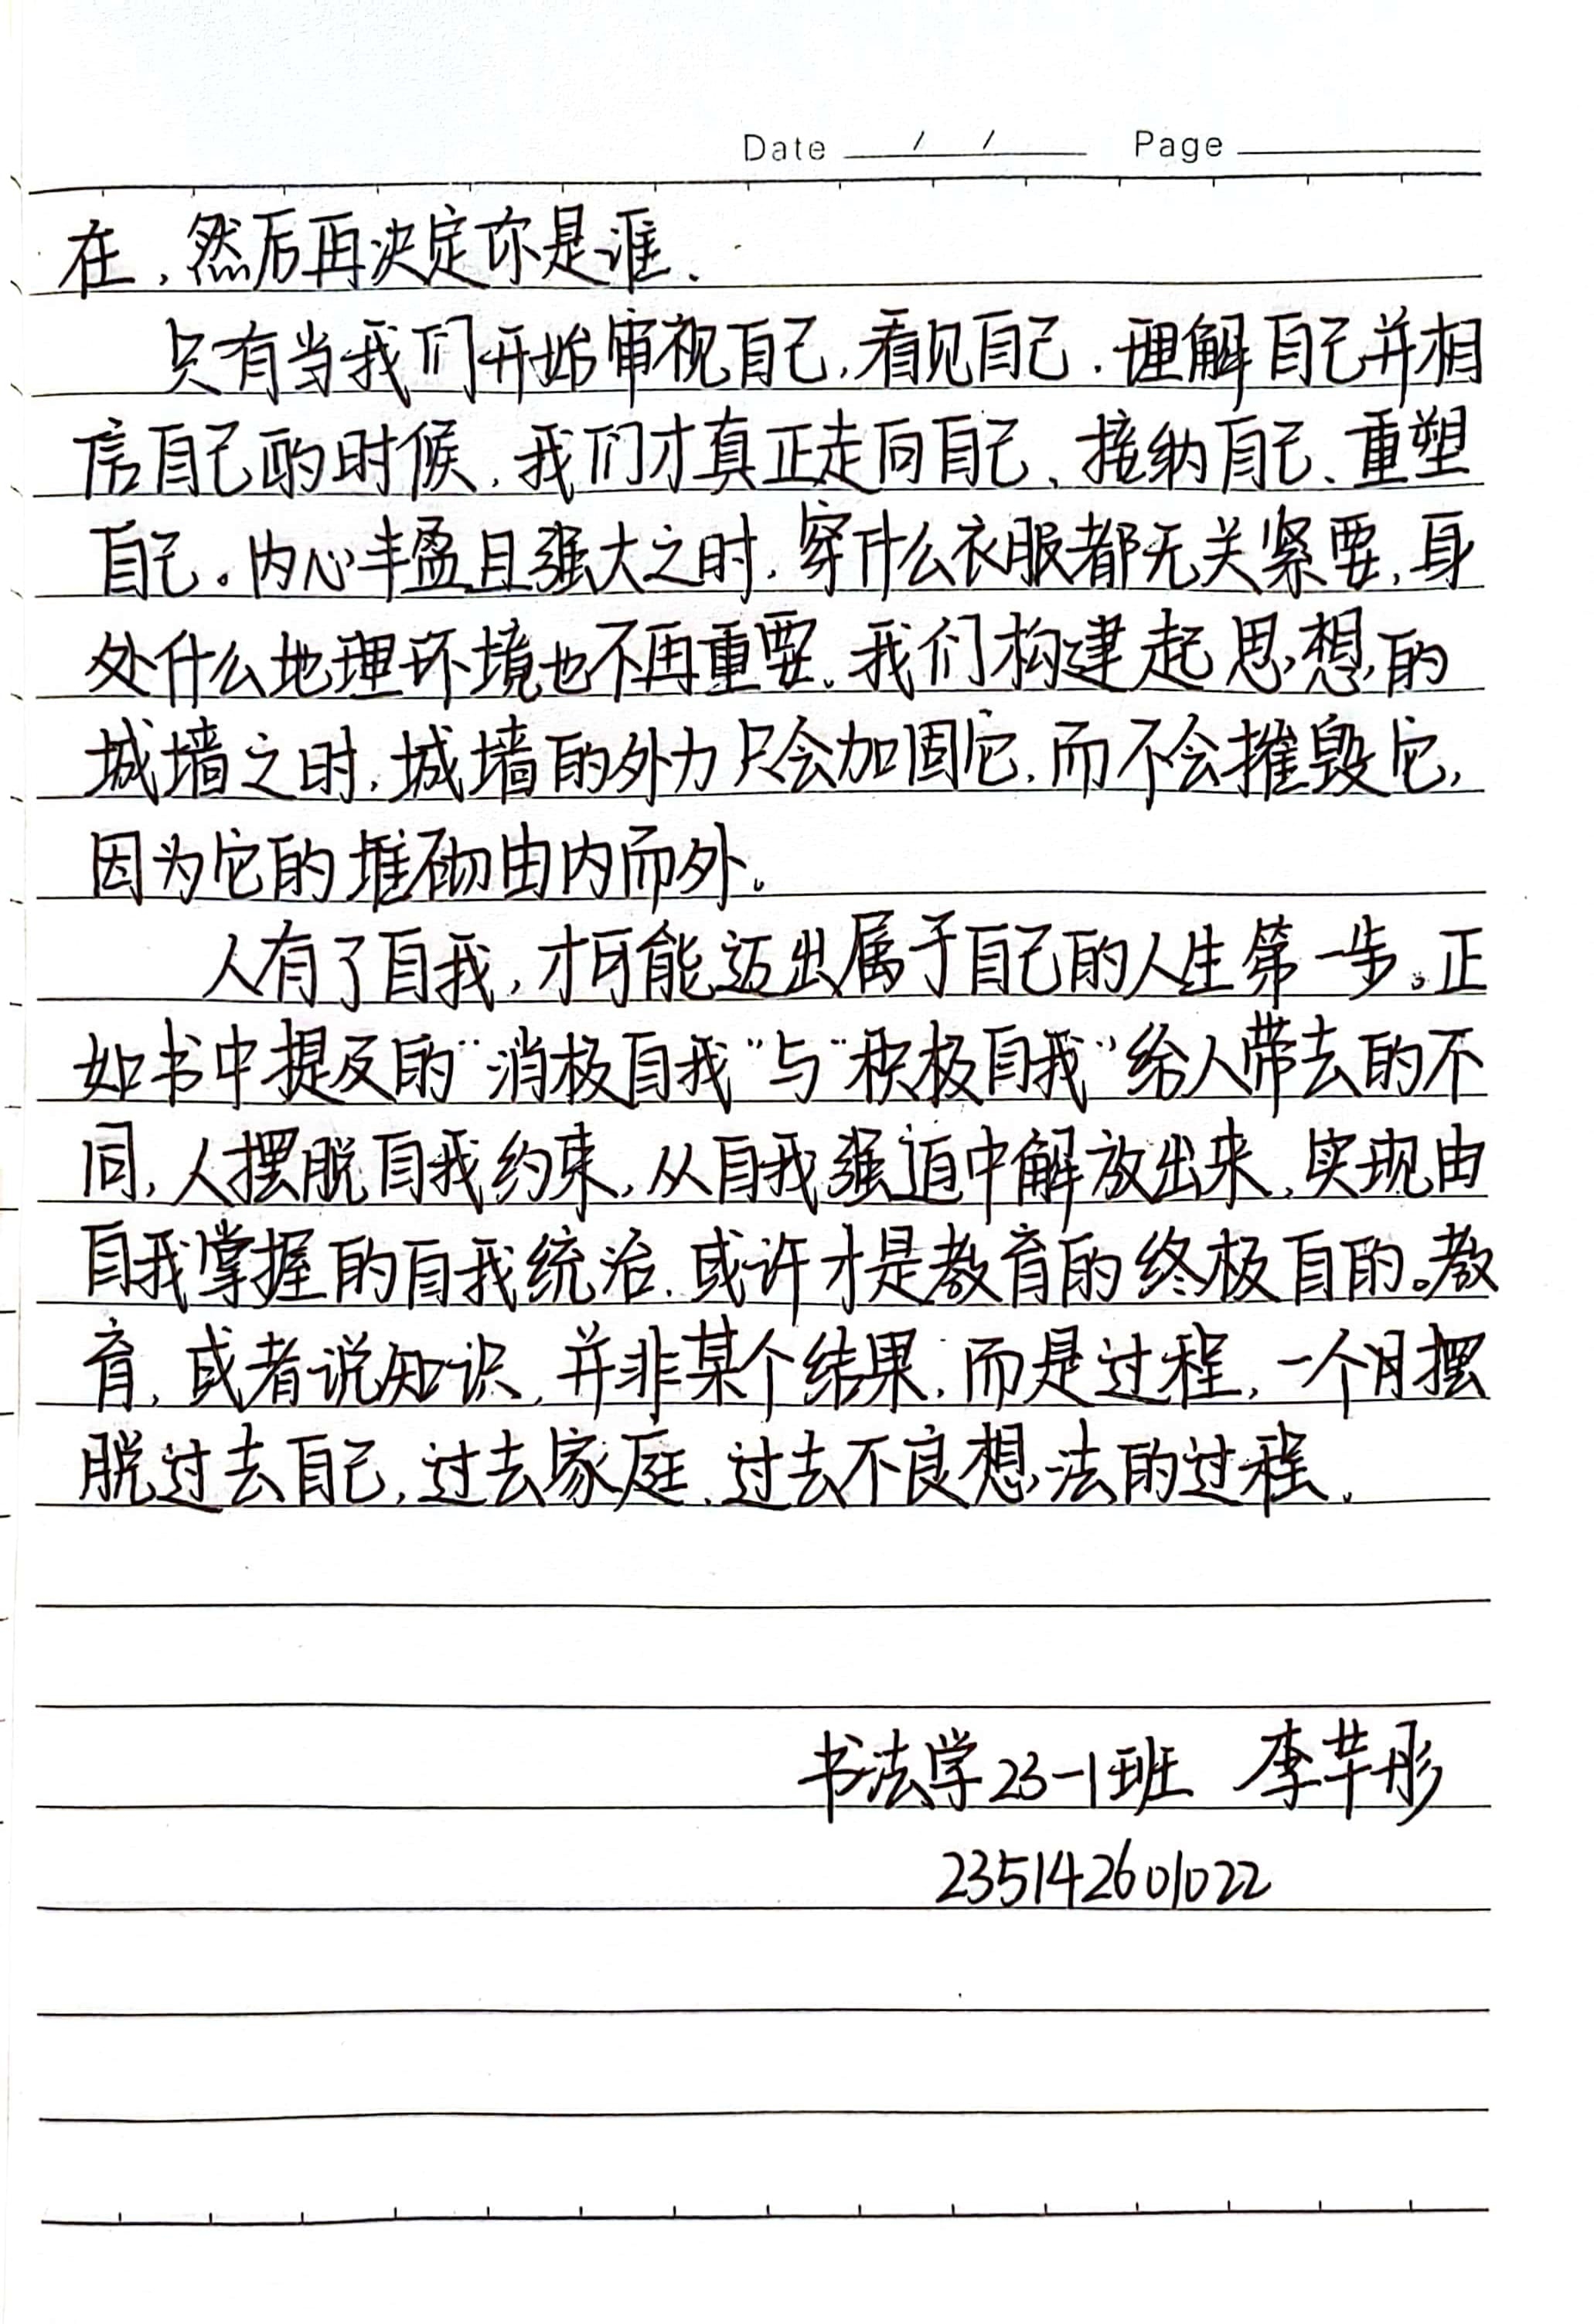 Date / / Page
在,然后再决定你是谁.
只有当我们开始审视自己,看见自己.理解自己并相
信自己的时候,我们才真正走向自己、接纳自己、重塑
自己。内心丰盈且强大之时,穿什么衣服都无关紧要,身
处什么地理环境也不再重要。我们构建起思想的
城墙之时,城墙的外力只会加固它,而不会摧毁它,
因为它的堆砌由内而外。
人有了自我,才可能迈出属于自己的人生第一步。正
如书中提及的“消极自我”与“积极自我”给人带去的不
同,人摆脱自我约束,从自我强迫中解放出来,实现由
自我掌握的自我统治.或许才是教育的终极目的。教
育,或者说知识,并非某个结果,而是过程,一个月摆
脱过去自己,过去家庭、过去不良想法的过程。
书法学23-1班 李芊彤
235142601022